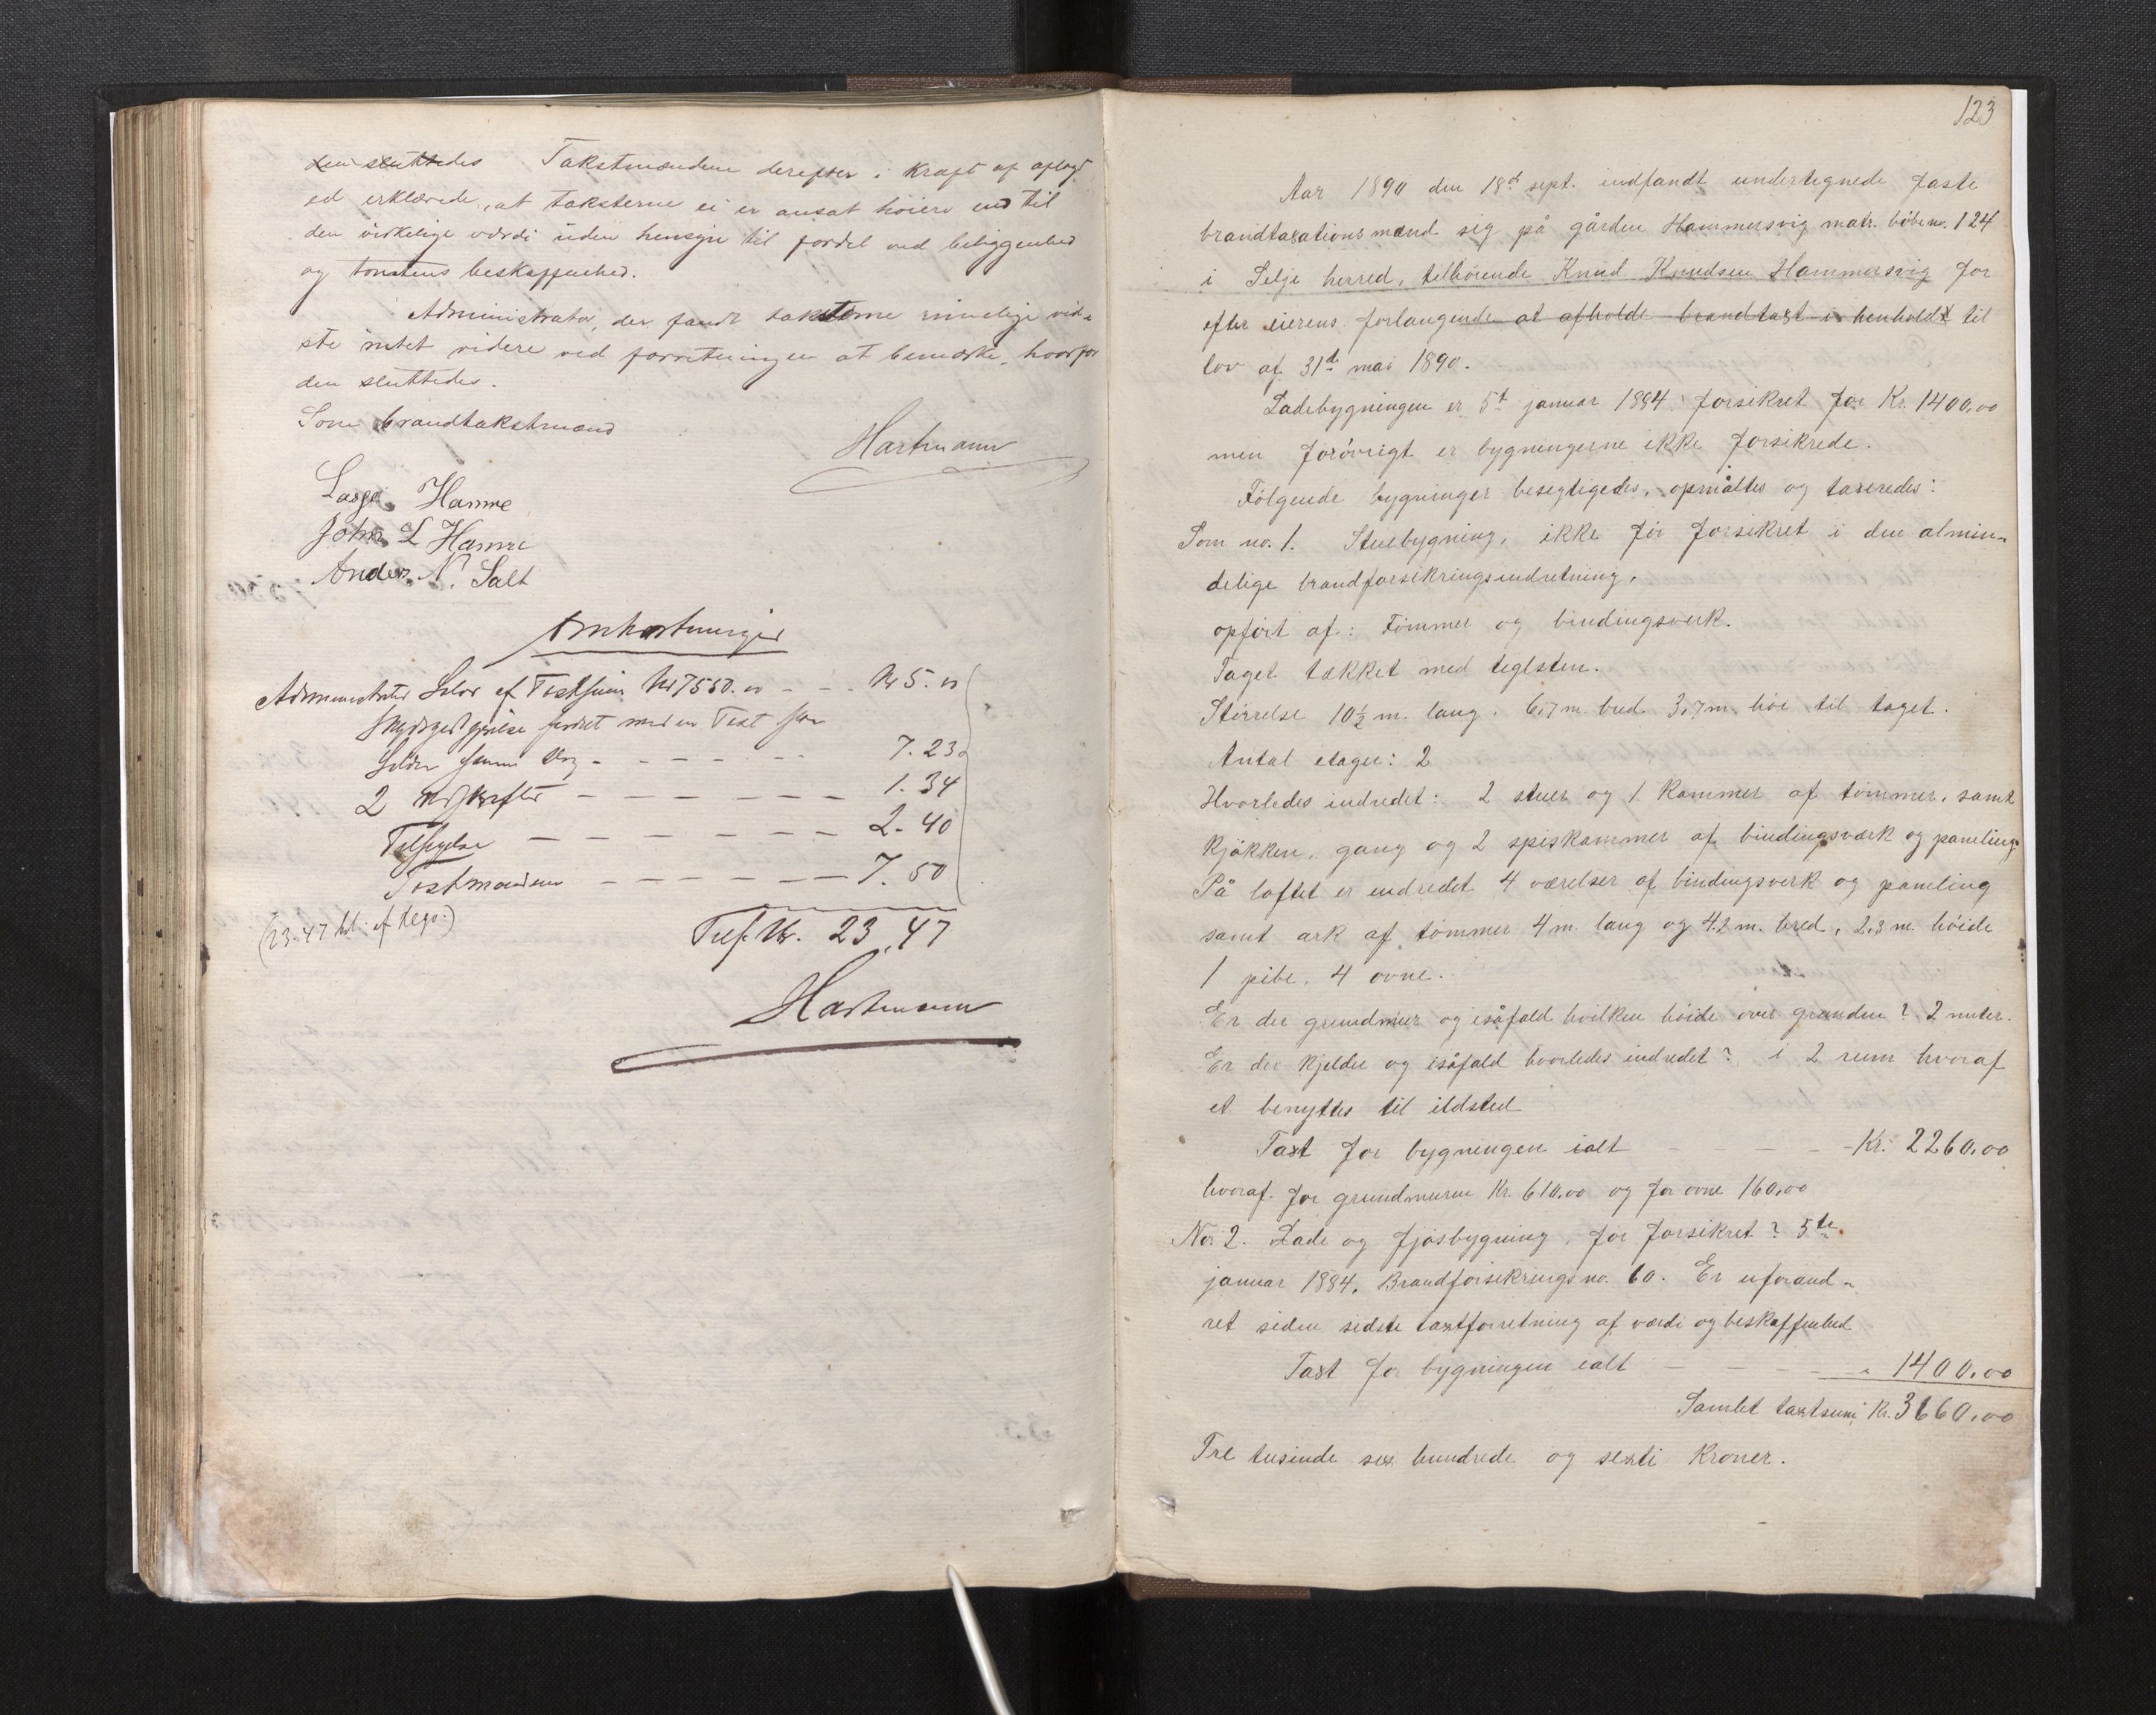 den sluttedes Takstmændene derefter i kraft af aflagt
ed erklærede, at taksterne ei er ansat høiere end til
den virkelige værdi uden hensyn til fordel ved beliggenhed
og tomtens beskaffenhed.
Administrator, der fandt taksterne rimelige vid-
ste intet videre ved forretningen at bemærke, hvorfor
den sluttedes.
Som brandtakstmænd
Hartmann
Lasse Hamre
John L Hamre
Anders N. Salt
Omkostninger
Administrator Salær af Taxtsum Kr 7550.00 - - - Kr 5.00
Skydsgodtgjørelse med en Taxt
samme Vei - - - - - - 7.23
2 Udskrifter - - - - - - 1.34
Tilsigelse - - - - - - 2.40
Taxtmændene - - - - - - 7.50
(23.47 af Rego:)
Tils. Kr. 23.47
Hartmann
123
Aar 1890 den 18d sept. indfandt undertegnede faste
brandtaxationsmænd sig på gården Hammersvig matr. løbeno. 124
i Selje herred, tilhørende Knud Knudsen Hammersvig for
efter eierens forlangende at afholde brandtaxt i henhold til
lov af 31d mai 1890.
Ladebygningen er 5t januar 1884 forsikret for Kr. 1400,00
men forøvrigt er bygningerne ikke forsikrede.
Følgende bygninger besegtigedes, opmåltes og taxeredes:
Som no. 1. Stuebygning, ikke før forsikret i den almin-
delige brandforsikringsindretning.
opført af: Tømmer og bindingsverk.
Taget tækket med teglsten.
Størrelse 10½ m. lang. 6,7 m. bred 3,7 m. høi til taget.
Antal etager: 2
Hvorledes indredet: 2 stuer og 1 Kammer af tømmer, samt
kjøkken, gang og 2 spiskammer af bindingsværk og paneling.
På loftet er indredet 4 værelser af bindingsverk og paneling
samt ark af tømmer 4 m. lang og 4.2 m. bred, 2,3 m. høide
1 pibe. 4 ovne.
Er der grundmur og isåfald hvilken høide over grunden? 2 meter.
Er der kjelder og isåfald hvorledes indredet? i 2 rum hvoraf
et benyttes til ildsted
Taxt for bygningen ialt - - - Kr. 2260,00
hvoraf for grundmuren Kr. 610,00 og for ovne 160,00
No. 2. Lade og fjøsbygning, før forsikret? 5te
januar 1884. Brandforsikringsno. 60. Er uforand-
ret siden sidste taxtforretning af værdi og beskaffenhed
Taxt for bygningen ialt - - - " 1400,00
Samlet taxtsum Kr. 3660,00
Tre tusinde sex hundrede og sexti Kroner.